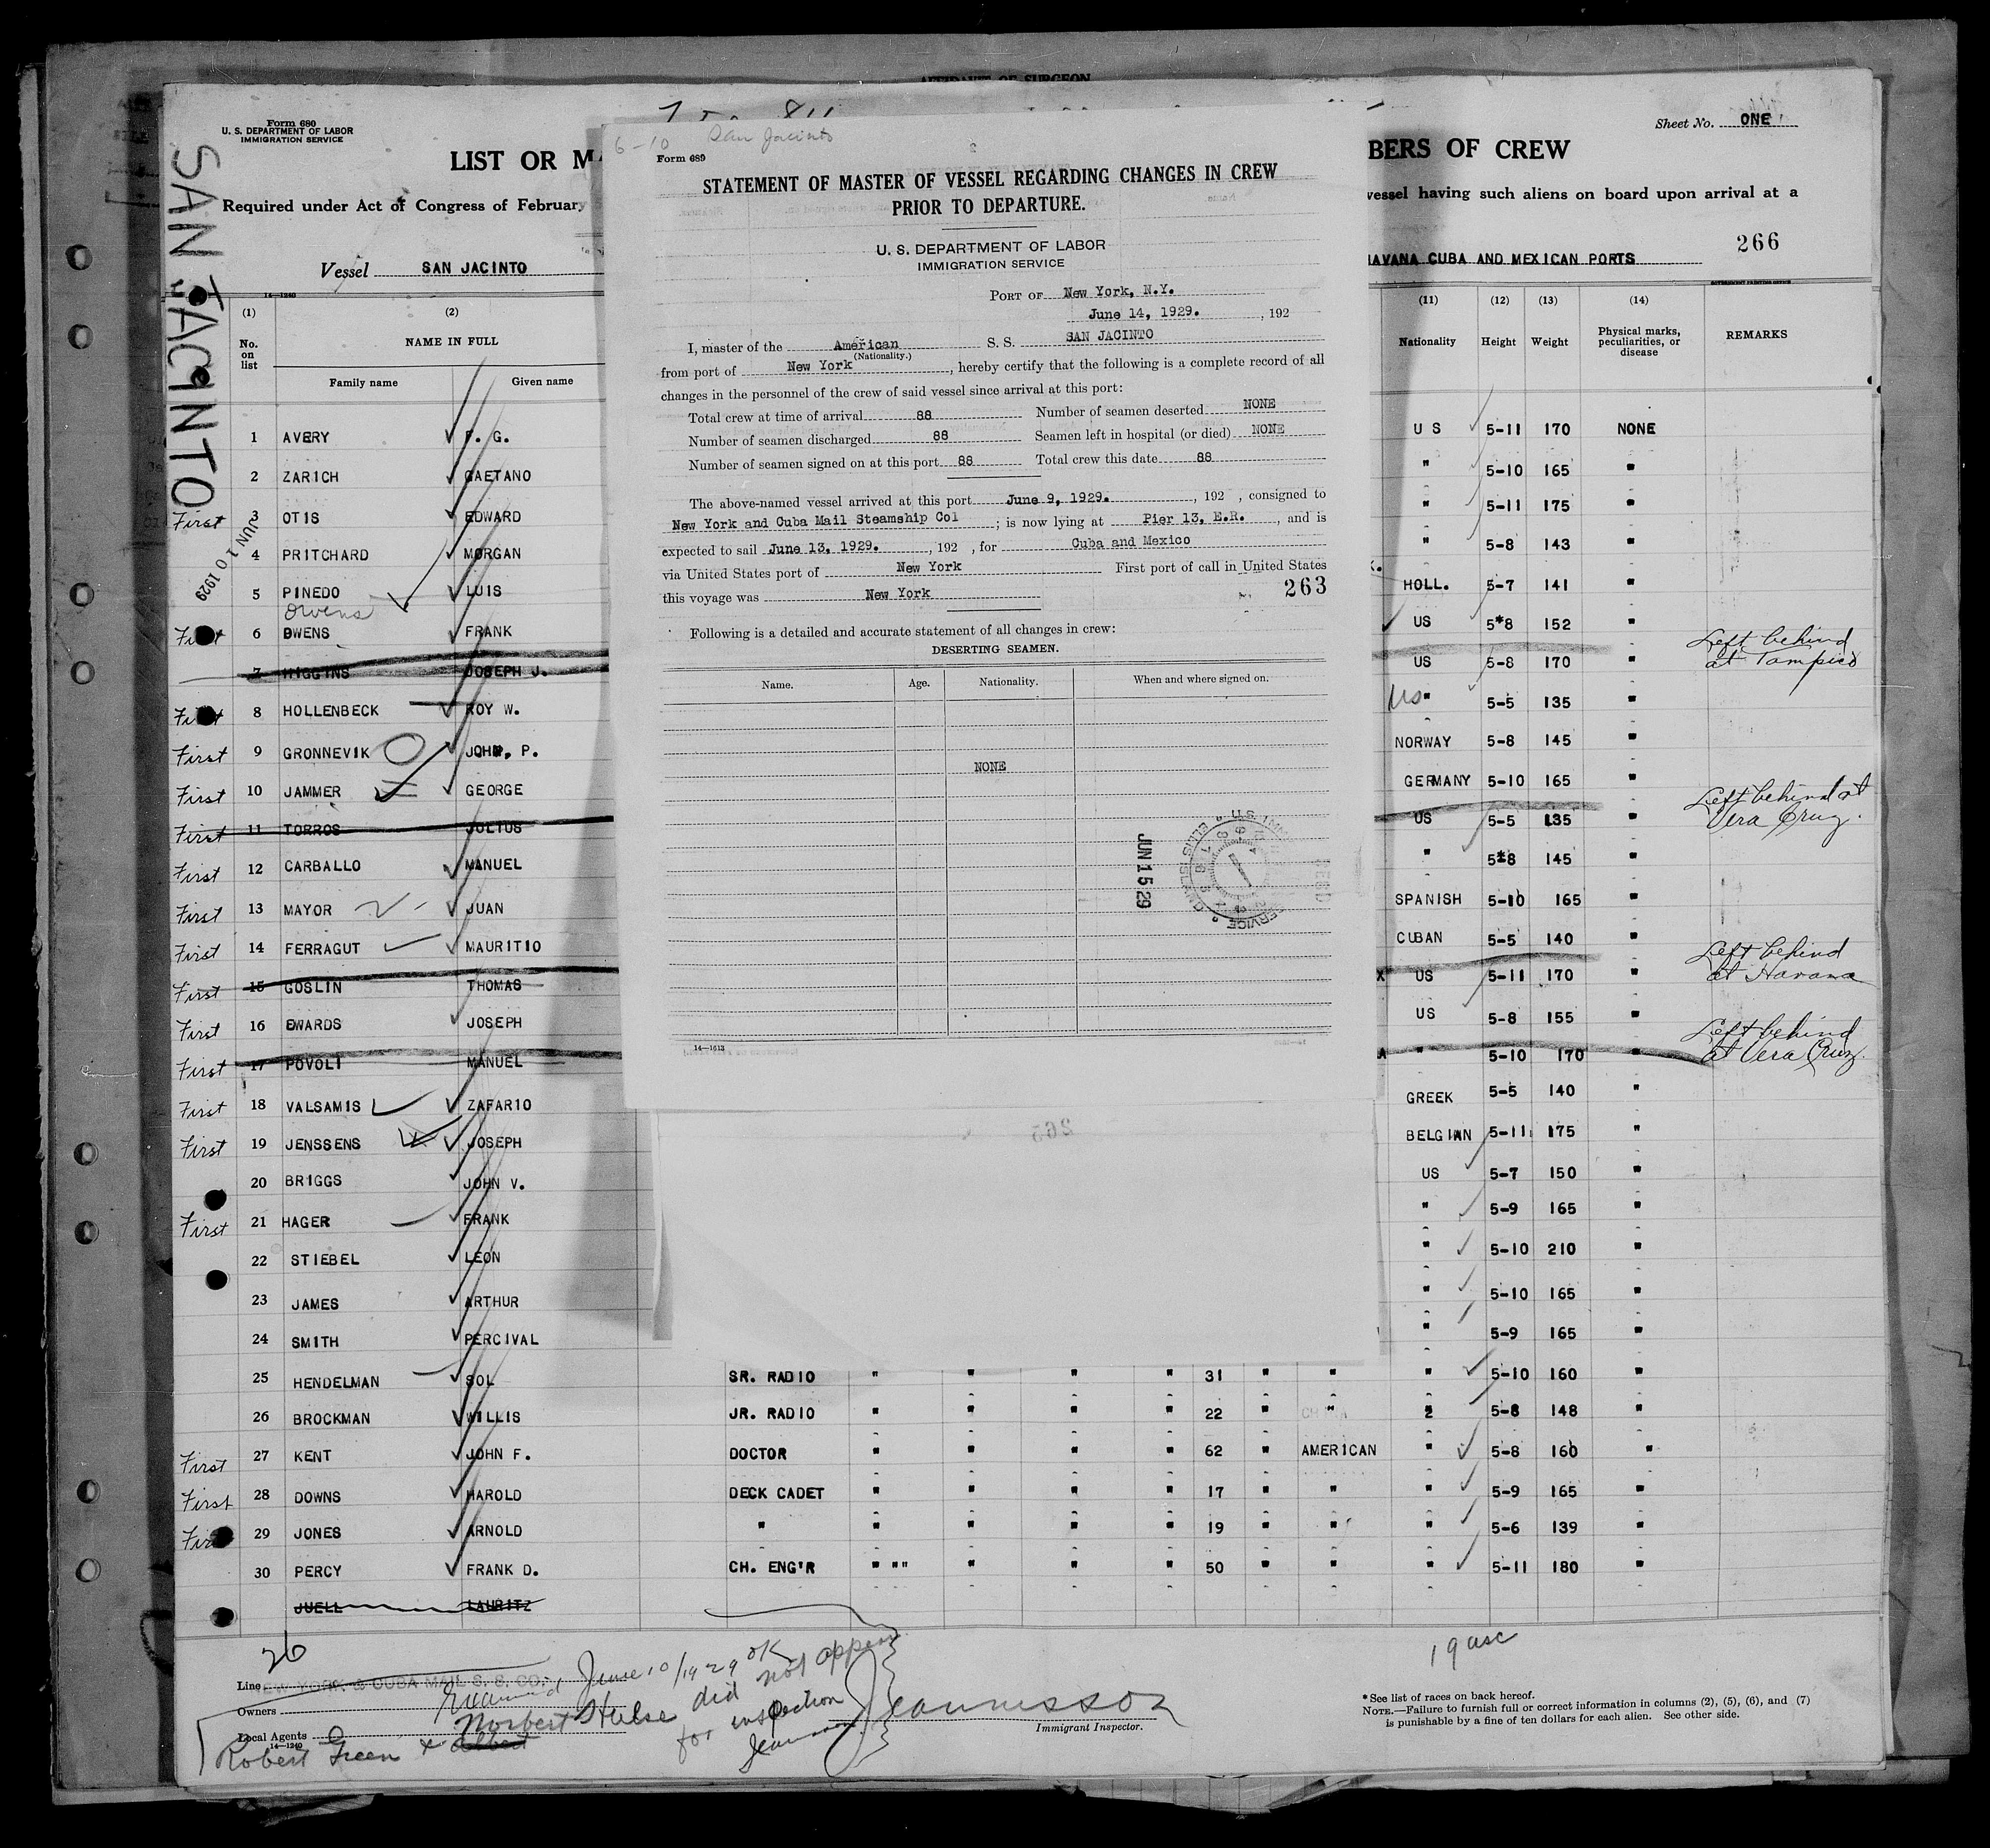 AFFIDAVIT OF SURGEON
Form 680
U. S. DEPARTMENT OF LABOR
IMMIGRATION SERVICE
Sheet No. ONE
LIST OR MA
BERS OF CREW
Required under Act of Congress of February
vessel having such aliens on board upon arrival at a
266
Vessel SAN JACINTO
HAVANA CUBA AND MEXICAN PORTS
SAN JACINTO
JUN 10 1929
14—1240
(1) (2) (11) (12) (13) (14)
No. on list NAME IN FULL Nationality Height Weight Physical marks, peculiarities, or disease REMARKS
Family name Given name
1 AVERY F. G. U S 5-11 170 NONE
2 ZARICH GAETANO " 5-10 165 "
First 3 OTIS EDWARD " 5-11 175 "
4 PRITCHARD MORGAN " 5-8 143 "
5 PINEDO LUIS HOLL. 5-7 141 "
Owens
First 6 OWENS FRANK US 5*8 152 "
7 HIGGINS JOSEPH J. US 5-8 170 " Left behind at Tampico
First 8 HOLLENBECK ROY W. US " 5-5 135 "
First 9 GRONNEVIK JOHN, P. NORWAY 5-8 145 "
First 10 JAMMER GEORGE GERMANY 5-10 165 "
First 11 TORROS JULIUS US 5-5 135 " Left behind at Vera Cruz.
First 12 CARBALLO MANUEL " 5*8 145 "
First 13 MAYOR JUAN SPANISH 5-10 165 "
First 14 FERRAGUT MAURITIO CUBAN 5-5 140 "
First 15 GOSLIN THOMAS US 5-11 170 " Left behind at Havana
First 16 EWARDS JOSEPH US 5-8 155 "
First 17 POVOLI MANUEL " 5-10 170 " Left behind at Vera Cruz.
First 18 VALSAMIS ZAFARIO GREEK 5-5 140 "
First 19 JENSSENS JOSEPH BELGIAN 5-11 175 "
20 BRIGGS JOHN V. US 5-7 150 "
First 21 HAGER FRANK " 5-9 165 "
22 STIEBEL LEON " 5-10 210 "
23 JAMES ARTHUR " 5-10 165 "
24 SMITH PERCIVAL " 5-9 165 "
25 HENDELMAN SOL SR. RADIO " " " " 31 " " " 5-10 160 "
26 BROCKMAN WILLIS JR. RADIO " " " " 22 " " " 5-8 148 "
First 27 KENT JOHN F. DOCTOR " " " " 62 " AMERICAN " 5-8 160 "
First 28 DOWNS HAROLD DECK CADET " " " " 17 " " " 5-9 165 "
First 29 JONES ARNOLD " " " " " 19 " " " 5-6 139 "
30 PERCY FRANK D. CH. ENG'R " "" " " " 50 " " " 5-11 180 "
JUELL LAURITZ
26
19 usc
Line NEW YORK & CUBA MAIL S. S. CO.
Owners
Local Agents
14—1240
Examined June 10/1929 OK
Norbert Hulse did not appear
for inspection
Robert Green & Albert
Jeannisson
Immigrant Inspector.
* See list of races on back hereof.
NOTE.—Failure to furnish full or correct information in columns (2), (5), (6), and (7)
is punishable by a fine of ten dollars for each alien. See other side.
6-10 San Jacinto
Form 689
STATEMENT OF MASTER OF VESSEL REGARDING CHANGES IN CREW
PRIOR TO DEPARTURE.
U. S. DEPARTMENT OF LABOR
IMMIGRATION SERVICE
PORT OF New York, N.Y.
June 14, 1929. , 192
I, master of the American S. S. SAN JACINTO
(Nationality.)
from port of New York , hereby certify that the following is a complete record of all
changes in the personnel of the crew of said vessel since arrival at this port:
Total crew at time of arrival 88 Number of seamen deserted NONE
Number of seamen discharged 88 Seamen left in hospital (or died) NONE
Number of seamen signed on at this port 88 Total crew this date 88
The above-named vessel arrived at this port June 9, 1929. , 192 , consigned to
New York and Cuba Mail Steamship Col ; is now lying at Pier 13, E.R. , and is
expected to sail June 13, 1929. , 192 , for Cuba and Mexico
via United States port of New York First port of call in United States
this voyage was New York
263
Following is a detailed and accurate statement of all changes in crew:
DESERTING SEAMEN.
Name. Age. Nationality. When and where signed on.
NONE
JUN 15 29
14—1613